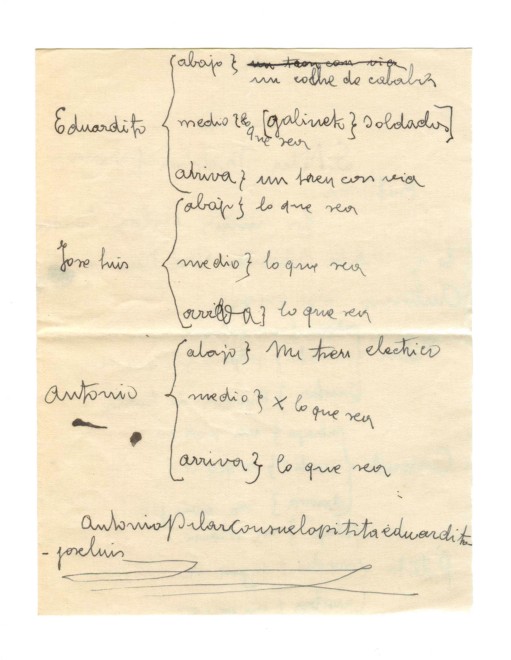 abajo } un tren con via
un coche de caballos
Eduardito medio } lo que sea [galinek } soldados]
atriva } un tren con via
abajo } lo que sea
Jose luis medio } lo que sea
arriba } lo que sea
abajo } un tren electrico
antonio medio } x lo que sea
arriva } lo que sea
antonioPilarconsuelopititaeduardito
-joseluis